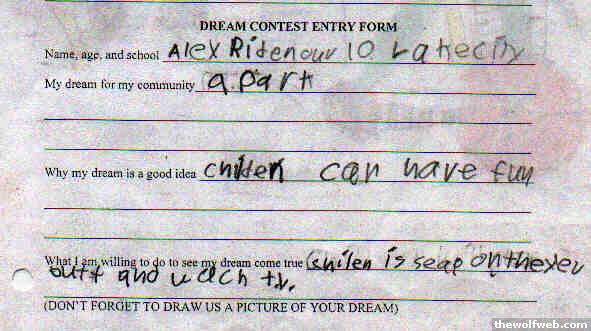 DREAM CONTEST ENTRY FORM
Name, age, and school Alex Ridenour 10 Lakecity
My dream for my community a part
Why my dream is a good idea chilen can have fun
What I am willing to do to see my dream come true Chilen is seap on
butt and wach tv.
(DON'T FORGET TO DRAW US A PICTURE OF YOUR DREAM)
thewolfweb.com